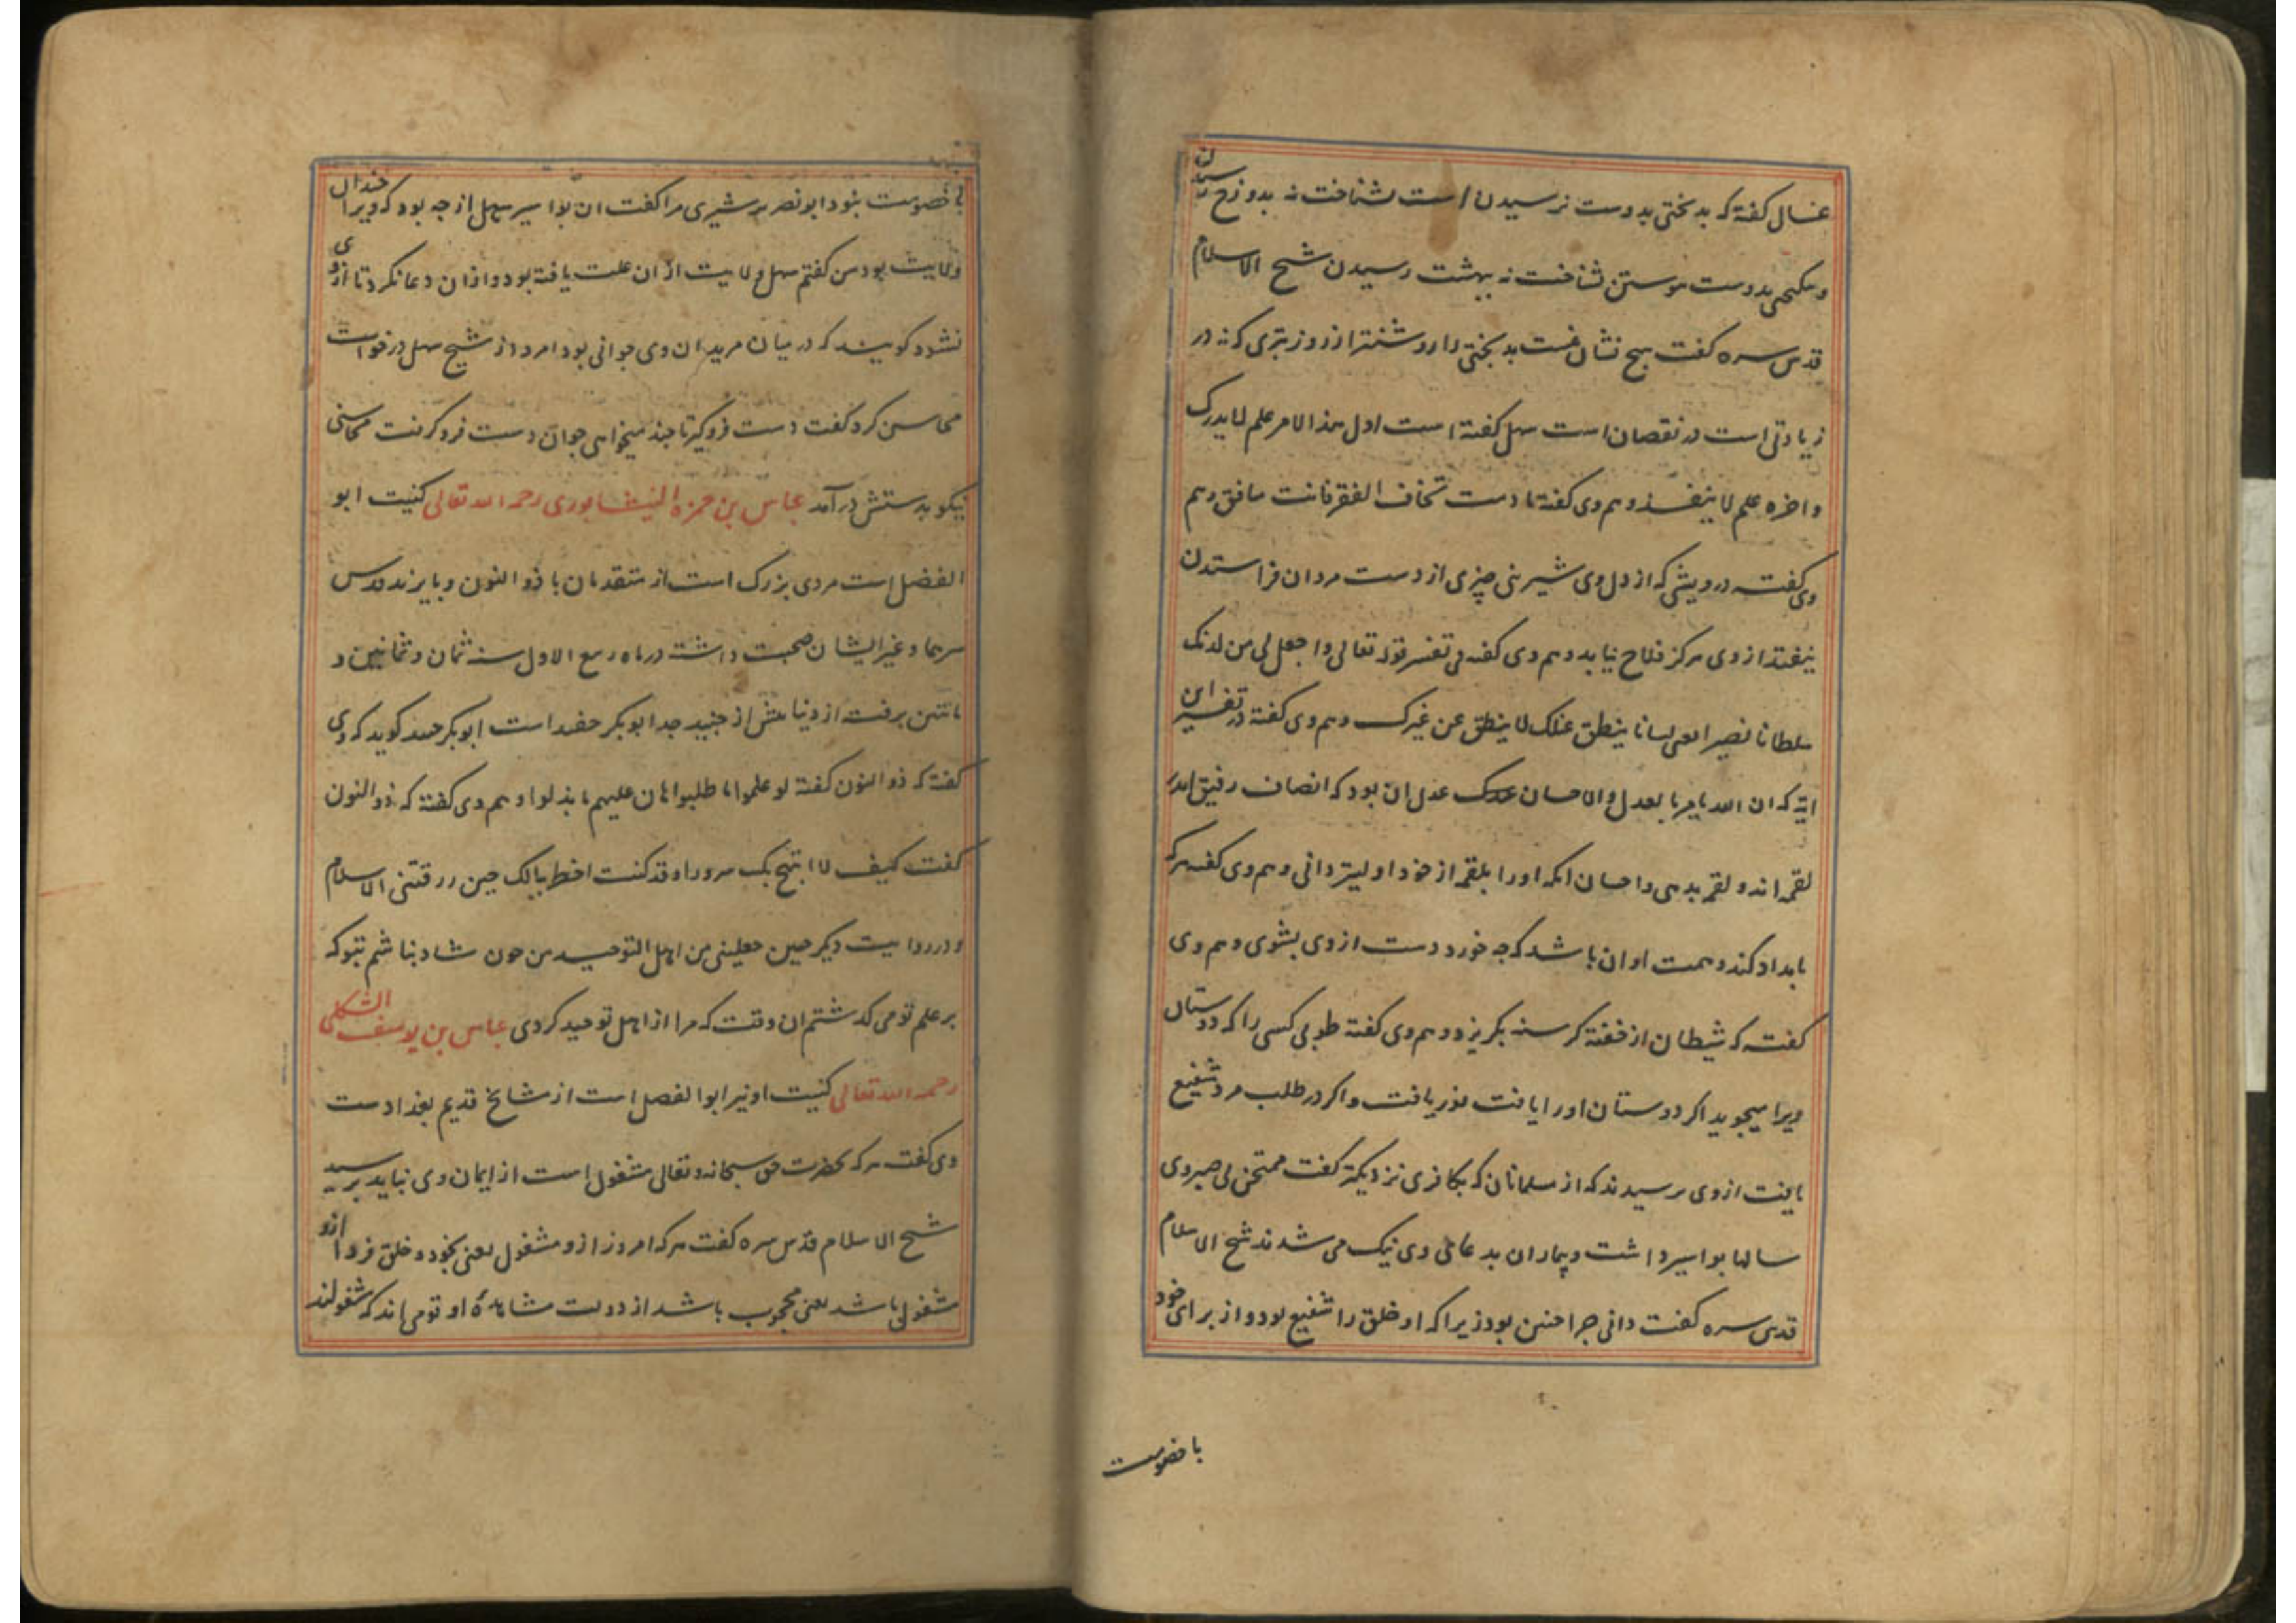 غسال گفته که بدبختی بدوست نرسیدن است شناخت نه بدوزخ رسیدن
و نیکبختی بدوست پیوستن شناخت نه ببهشت رسیدن شیخ الاسلام
قدس سره گفت هیچ نشان نیست بدبختی را روشنتر از روز بتری که نه در
زیادتی است در نقصان است سهل گفته است اول هذا الامر علم لا یدرک
و اخره علم لا ینفد و هم وی گفته ما دمت تخاف الفقر فانت منافق و هم
وی گفته درویشی که از دل وی شیرینی چیزی از دست مردان فراستدن
نیفتد از وی هرگز فلاح نیاید و هم وی گفته فی تفسیر قوله تعالی واجعل لی من لدنک
سلطانا نصیرا یعنی لسانا ینطق عنک لا ینطق عن غیرک و هم وی گفته در تفسیر این
ایة که ان الله یامر بالعدل والاحسان عدل ان بود که انصاف رفیق اندر
لقمه اندو لقمه بدهی و احسان انکه او را بلقمه از خود اولیتر دانی و هم وی گفته هرکه
بامداد کند و همت او ان باشد که چه خورد دست از وی بشوی و هم وی
گفته که شیطان از خفته گرسنه بگریزد و هم وی گفته طوبی کسی را که دوستان
ویرا میجوید اگر دوستان او را یافت نور یافت و اگر در طلب مرد شفیع
یافت از وی پرسیدند که از مسلمانان که بکافری نزدیکتر گفت ممتحن بی صبر وی
سالها بواسیر داشت و بیماران بدعای وی نیک می شدند شیخ الاسلام
قدس سره گفت دانی چرا چنین بود زیرا که او خلق را شفیع بود و از برای خود
با خصومت
با خصومت نبود ابو نصر ترشیزی مرا گفت ان بواسیر سهل از چه بود که ویرا چندان
ولایت بود من گفتم سهل ولایت از ان علت یافته بود و از ان دعا نکرد تا از وی
نشود گویند که در میان مریدان وی جوانی بود امرد از شیخ سهل درخواست
محاسن کرد گفت دست فروگیر تا چند میخواهی جوان دست فرو گرفت محاسنی
نیکو بدستش درآمد عباس بن حمزة النیشابوری رحمه الله تعالی کنیت ابو
الفضل است مردی بزرگ است از متقدمان با ذو النون و بایزید قدس
سرهما و غیر ایشان صحبت داشته در ماه ربیع الاول سنه ثمان و ثمانین و
مائتین برفته از دنیا پیش از جنید جد ابوبکر حفید است ابوبکر حفید گوید که وی
گفته که ذو النون گفته لو علموا ما طلبوا هان علیهم ما بذلوا و هم وی گفته که ذو النون
گفت کیف لا ابتهج بک سرورا و قد کنت اخطر ببالک حین رزقتنی الاسلام
و در روایت دیگر حین جعلتنی من اهل التوحید من چون شاد نباشم بتو که
بر علم تو می گذشتم ان وقت که مرا از اهل توحید کردی عباس بن یوسف الشکلی
رحمه الله تعالی کنیت او نیز ابو الفضل است از مشایخ قدیم بغدادست
وی گفت هرکه بحضرت حق سبحانه و تعالی مشغول است از ایمان وی نباید پرسید
شیخ الاسلام قدس سره گفت هرکه امروز ازو مشغول یعنی بخود و خلق فردا ازو
مشغول باشد یعنی محجوب باشد از دولت مشاهدهٔ او قومی اند که مشغولند